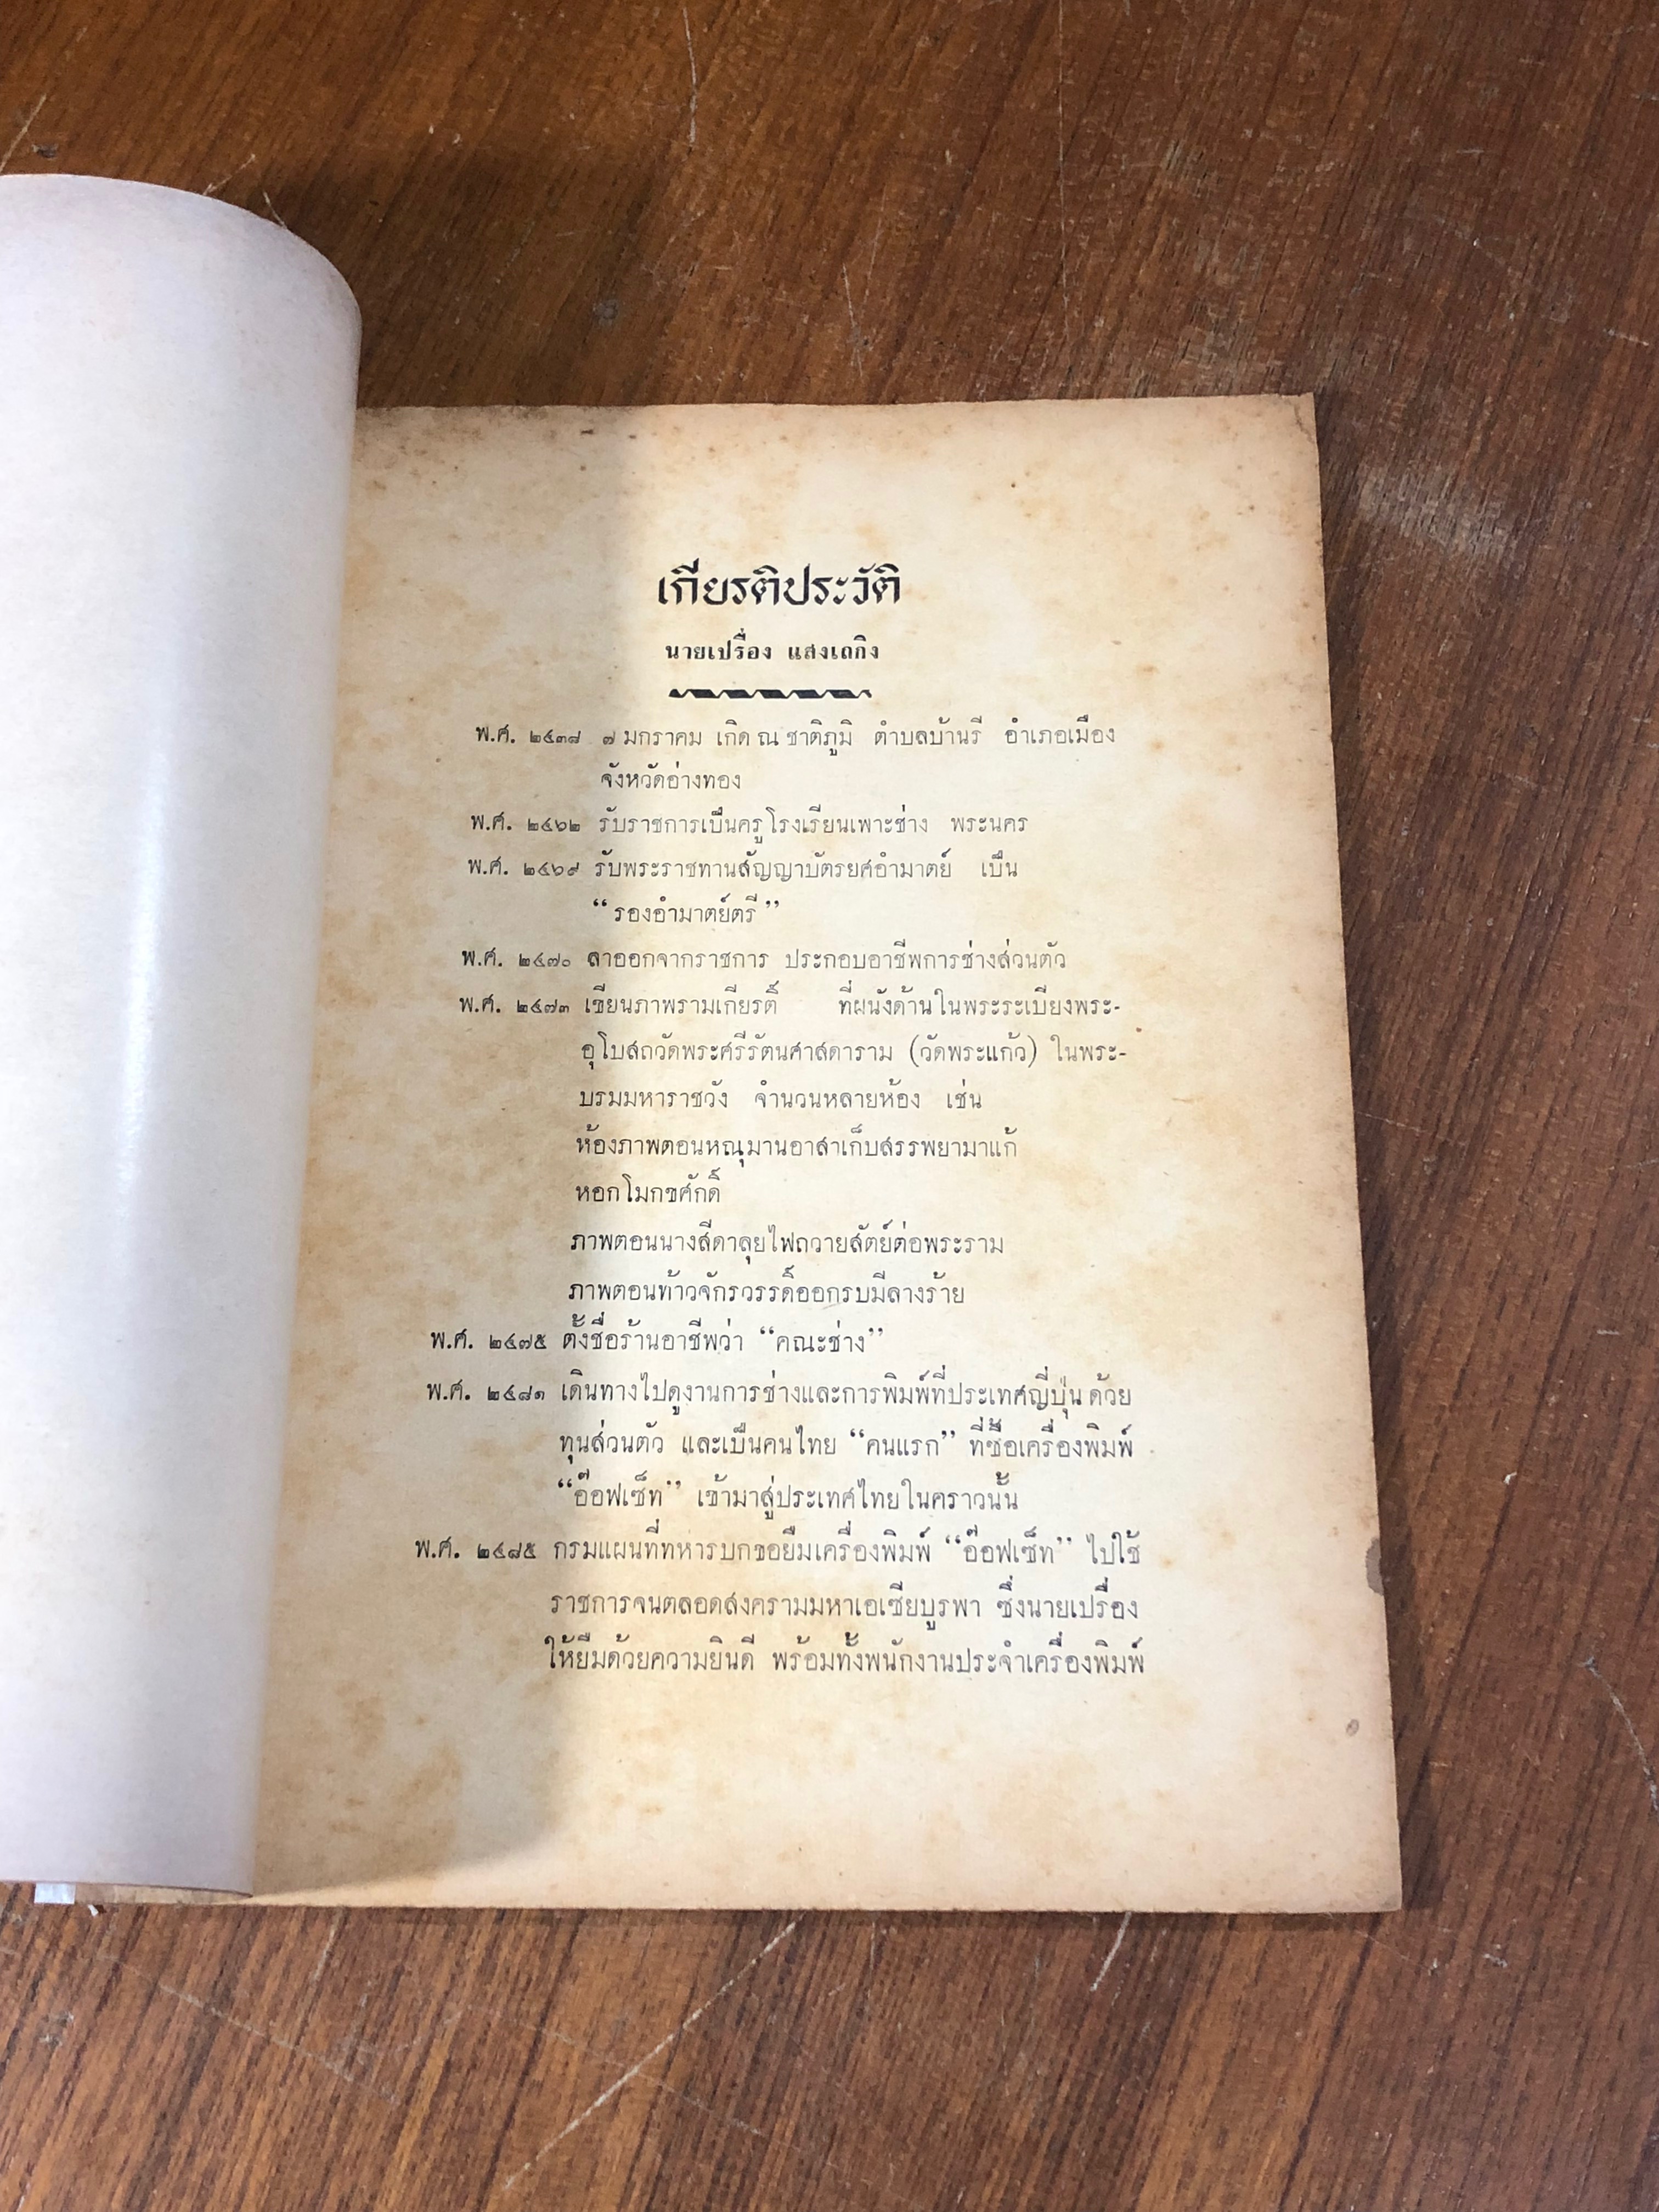 เกียรติประวัติ
นายเปรื่อง แสงเถกิง
พ.ศ. ๒๔๓๘ ๗ มกราคม เกิด ณ ชาติภูมิ ตำบลบ้านรี อำเภอเมือง
จังหวัดอ่างทอง
พ.ศ. ๒๔๖๒ รับราชการเป็นครูโรงเรียนเพาะช่าง พระนคร
พ.ศ. ๒๔๖๙ รับพระราชทานสัญญาบัตรยศอำมาตย์ เป็น
“รองอำมาตย์ตรี”
พ.ศ. ๒๔๗๐ ลาออกจากราชการ ประกอบอาชีพการช่างส่วนตัว
พ.ศ. ๒๔๗๓ เขียนภาพรามเกียรติ์ ที่ผนังด้านในพระระเบียงพระ-
อุโบสถวัดพระศรีรัตนศาสดาราม (วัดพระแก้ว) ในพระ-
บรมมหาราชวัง จำนวนหลายห้อง เช่น
ห้องภาพตอนหณุมานอาสาเก็บสรรพยามาแก้
หอกโมกขศักดิ์
ภาพตอนนางสีดาลุยไฟถวายสัตย์ต่อพระราม
ภาพตอนท้าวจักรวรรดิ์ออกรบมีลางร้าย
พ.ศ. ๒๔๗๕ ตั้งชื่อร้านอาชีพว่า “คณะช่าง”
พ.ศ. ๒๔๘๑ เดินทางไปดูงานการช่างและการพิมพ์ที่ประเทศญี่ปุ่น ด้วย
ทุนส่วนตัว และเป็นคนไทย “คนแรก” ที่ซื้อเครื่องพิมพ์
“อ๊อฟเซ็ท” เข้ามาสู่ประเทศไทยในคราวนั้น
พ.ศ. ๒๔๘๕ กรมแผนที่ทหารบกขอยืมเครื่องพิมพ์ “อ๊อฟเซ็ท” ไปใช้
ราชการจนตลอดสงครามมหาเอเซียบูรพา ซึ่งนายเปรื่อง
ให้ยืมด้วยความยินดี พร้อมทั้งพนักงานประจำเครื่องพิมพ์